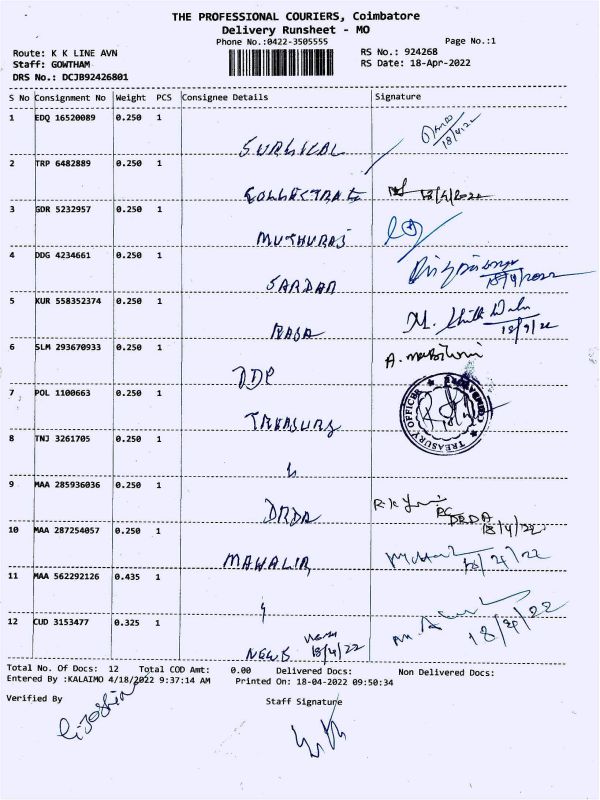 THE PROFESSIONAL COURIERS, Coimbatore
Delivery Runsheet - MO
Phone No.:0422-3505555
Page No.:1
Route: K K LINE AVN
RS No.: 924268
Staff: GOWTHAM
RS Date: 18-Apr-2022
DRS No.: DCJB92426801
S No Consignment No Weight PCS Consignee Details Signature
1 EDQ 16520089 0.250 1
SURGICAL 18/4/22
2 TRP 6482889 0.250 1
COLLECTRATE 18/4/2022
3 GDR 5232957 0.250 1
MUTHURAJ
4 DDG 4234661 0.250 1
SARDAR 18/4/2022
5 KUR 558352374 0.250 1
RAJA M. 18/4/22
6 SLM 293670933 0.250 1
DDP A.
7 POL 1100663 0.250 1
TREASURY TREASURY OFFICER
8 TNJ 3261705 0.250 1
9 MAA 285936036 0.250 1
DRDA DRDA 18/4/22
10 MAA 287254057 0.250 1
18/4/22
11 MAA 562292126 0.435 1
12 CUD 3153477 0.325 1
NEWS 18/4/22 18/4/22
Total No. Of Docs: 12 Total COD Amt: 0.00 Delivered Docs: Non Delivered Docs:
Entered By :KALAIMO 4/18/2022 9:37:14 AM Printed On: 18-04-2022 09:50:34
Verified By Staff Signature